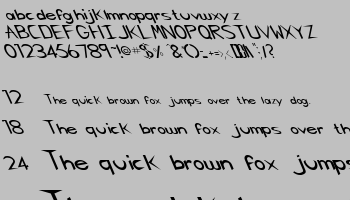 abcdefghijklmnopqrstuvwxyz
ABCDEFGHIJKLMNOPQRSTUVWXYZ
0123456789
12 The quick brown fox jumps over the lazy dog.
18 The quick brown fox jumps over th
24 The quick brown fox jumps